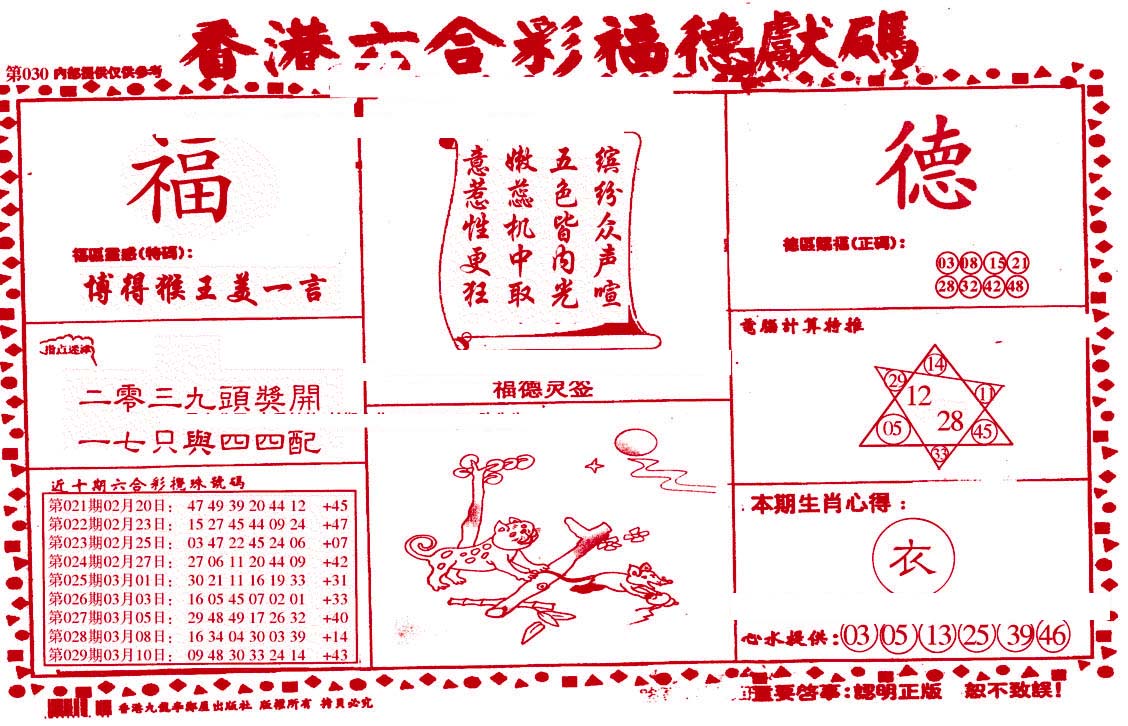 香港六合彩福德獻碼
第030 內部提供仅供参考
福
福區靈感(特碼):
博得猴王美一言
指点迷津
二零三九頭獎開
一七只與四四配
近十期六合彩攪珠號碼
第021期02月20日: 47 49 39 20 44 12 +45
第022期02月23日: 15 27 45 44 09 24 +47
第023期02月25日: 03 47 22 45 24 06 +07
第024期02月27日: 27 06 11 20 44 09 +42
第025期03月01日: 30 21 11 16 19 33 +31
第026期03月03日: 16 05 45 07 02 01 +33
第027期03月05日: 29 48 49 17 26 32 +40
第028期03月08日: 16 34 04 30 03 39 +14
第029期03月10日: 09 48 30 33 24 14 +43
缤纷众声喧
五色皆内光
嫩蕊机中取
意惹性更狂
福德灵签
德
德區賜福(正碼):
03 08 15 21
28 32 42 48
電腦計算特推
14
29
11
12
28
05
45
33
本期生肖心得:
衣
心水提供: 03 05 13 25 39 46
重要啓事:認明正版 恕不致誤!
版權所有 拷貝必究